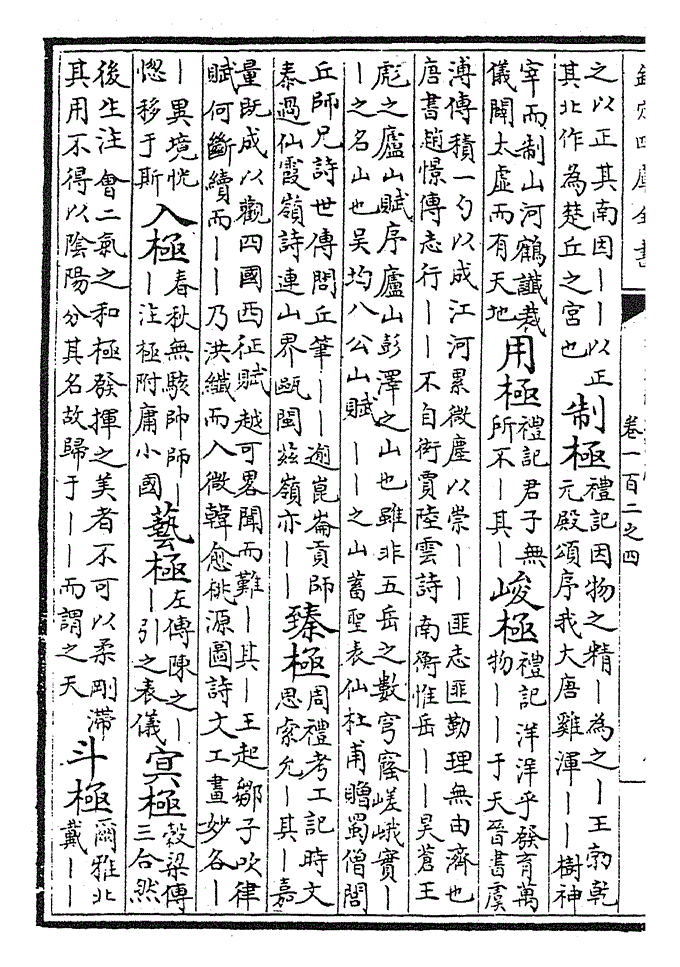 欽定四庫全書
卷一百二之四
之以正其南因｜｜以正
其北作為楚丘之宮也
制極
禮記因物之精｜為之｜王勃乾
元殿頌序我大唐雞渾｜｜樹神
宰而制山河鶴讖裁
儀闢太虛而有天地
用極
禮記君子無
所不｜其｜
峻極
禮記洋洋乎發育萬
物｜｜于天晉書虞
溥傳積一勺以成江河累微塵以崇｜｜匪志匪勤理無由濟也
唐書趙憬傳志行｜｜不自衒賈陸雲詩 南衡惟岳｜｜昊蒼王
彪之廬山賦序廬山彭澤之山也雖非五岳之數穹窿嵯峨實｜
｜之名山也吳均八公山賦 ｜｜之山蓄聖表仙杜甫贈蜀僧閭
丘師兄詩世傳閭丘筆｜｜逾崑崙貢師
泰過仙霞嶺詩連山界甌閩茲嶺亦｜｜
臻極
周禮考工記時文
思索允｜其｜嘉
量既成以觀四國西征賦越可畧聞而難｜其｜王起鄒子吹律
賦何斷續而｜｜乃洪纖而入微韓愈桃源圖詩文工畫妙各｜
｜異境恍
惚移于斯
入極
春秋無駭帥師｜
｜注極附庸小國
藝極
左傳陳之｜
｜引之表儀
冥極
穀梁傳
三合然
後生注會二氣之和極發揮之美者不可以柔剛滯
其用不得以陰陽分其名故歸于｜｜而謂之天
斗極
爾雅北
戴｜｜